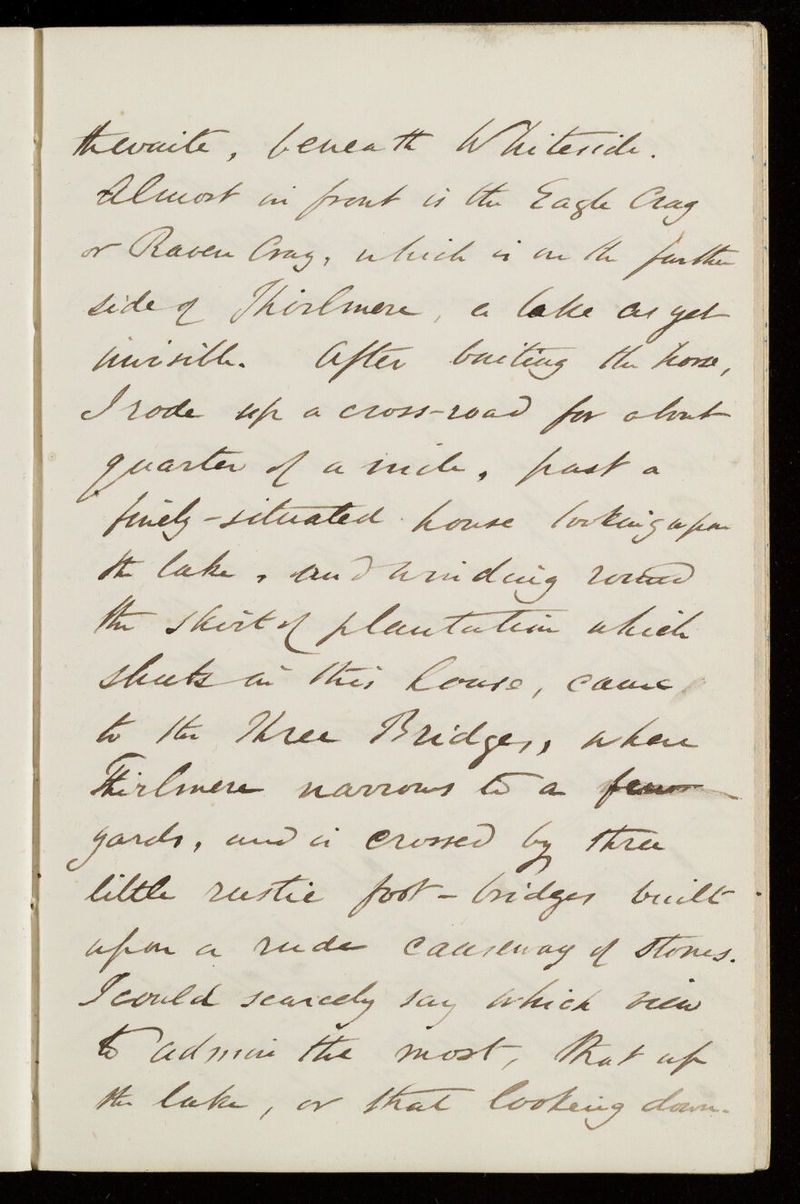 thwaite, beneath Whiteside.
Almost in front is the Eagle Crag
or Raven Crag, which is on the further
side of Thirlmere, a lake as yet
invisible. After baiting the horse,
I rode up a cross-road for about
quarter of a mile, past a
finely-situated house looking upon
the lake, and winding round
the skirt of plantation which
shuts in this house, came
to the Three Bridges, where
Thirlmere narrows to a few
yards, and is crossed by three
little rustic foot-bridges built
upon a rude causeway of stones.
I could scarcely say which view
to admire the most, that up
the lake, or that looking down.